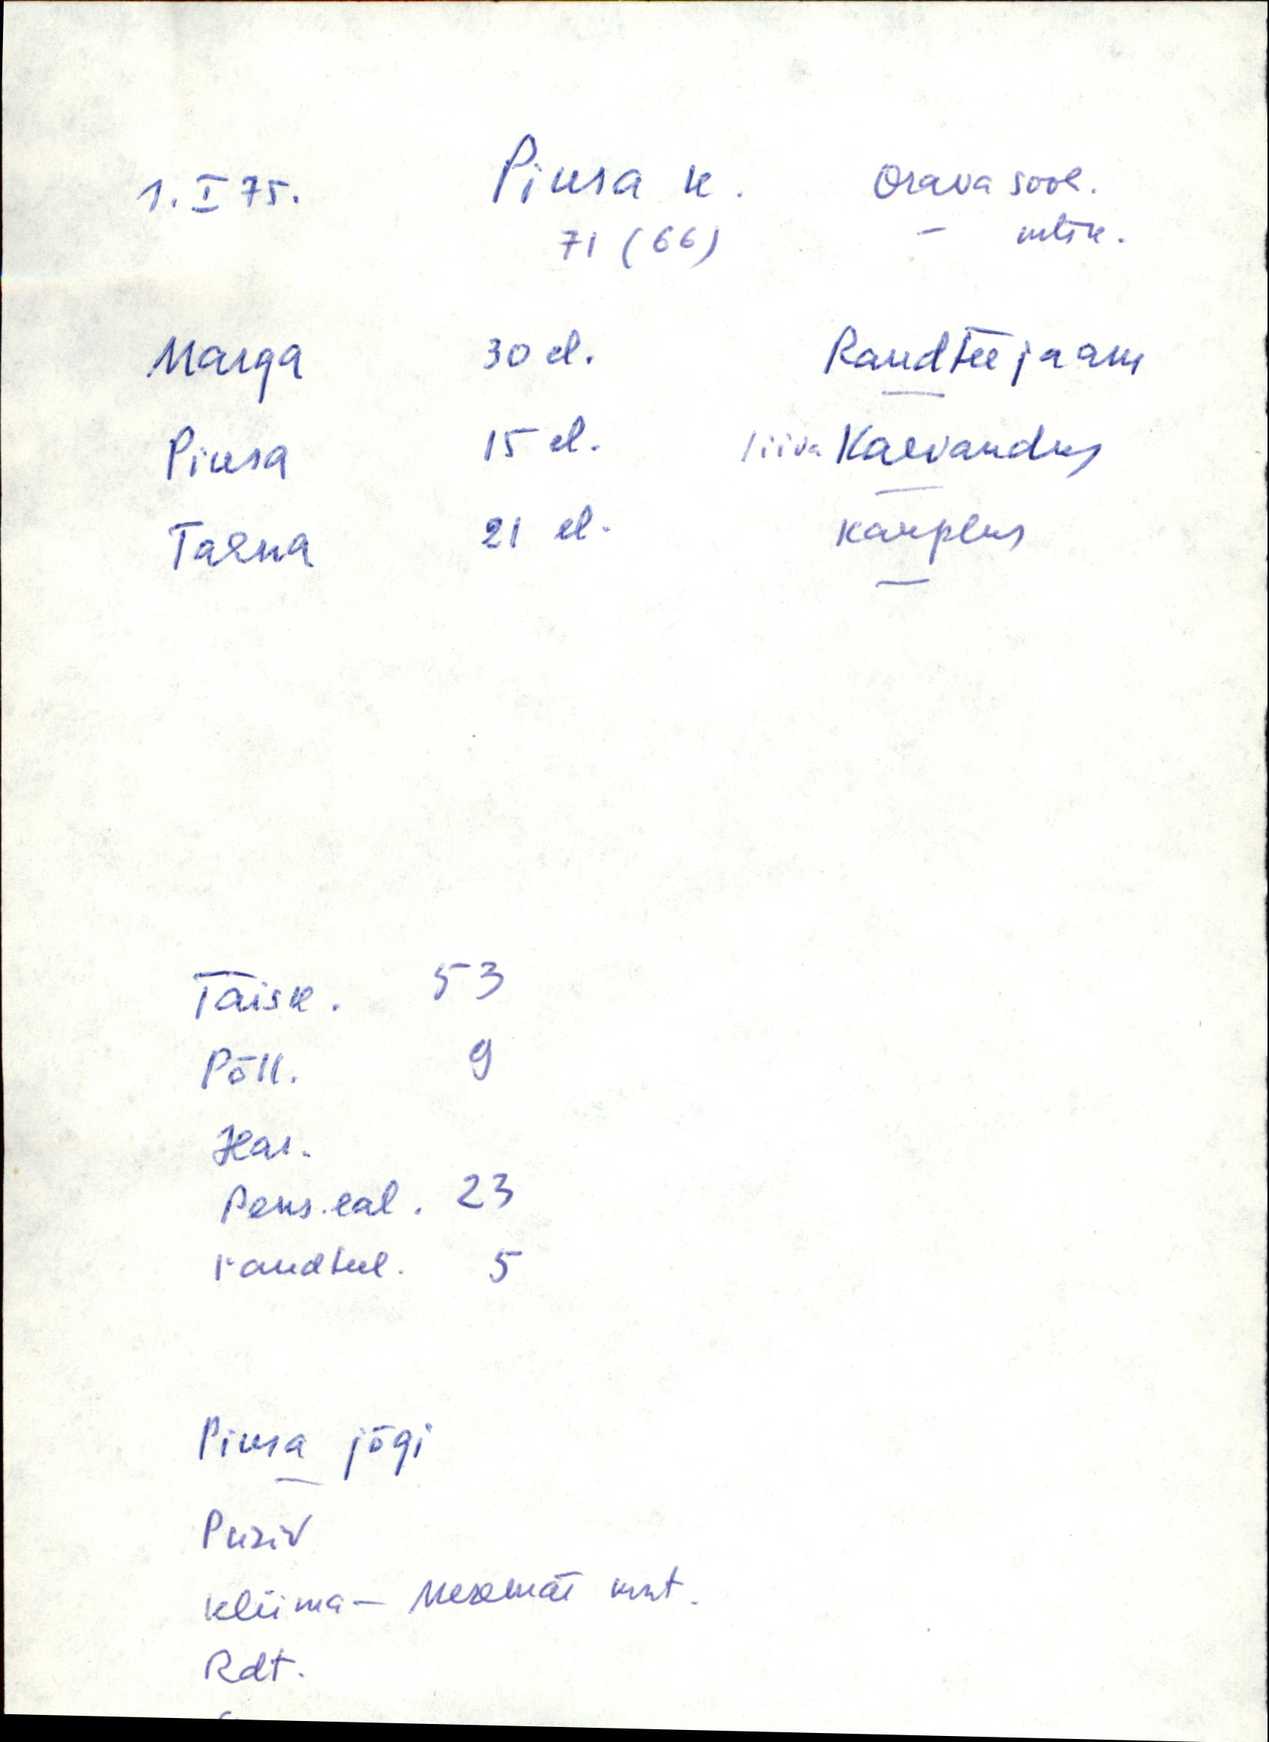 1. I 75. Piusa k. Orava sook.
71 (66) — mtsk.
Marga 30 el. Raudteejaam
Piusa 15 el. liiva Kaevandus
Taena 21 el. kauplus
Täisk. 53
Põll. 9
Har.
Pens. eal. 23
raudteel. 5
Piusa jõgi
Kliima —
Rdt.